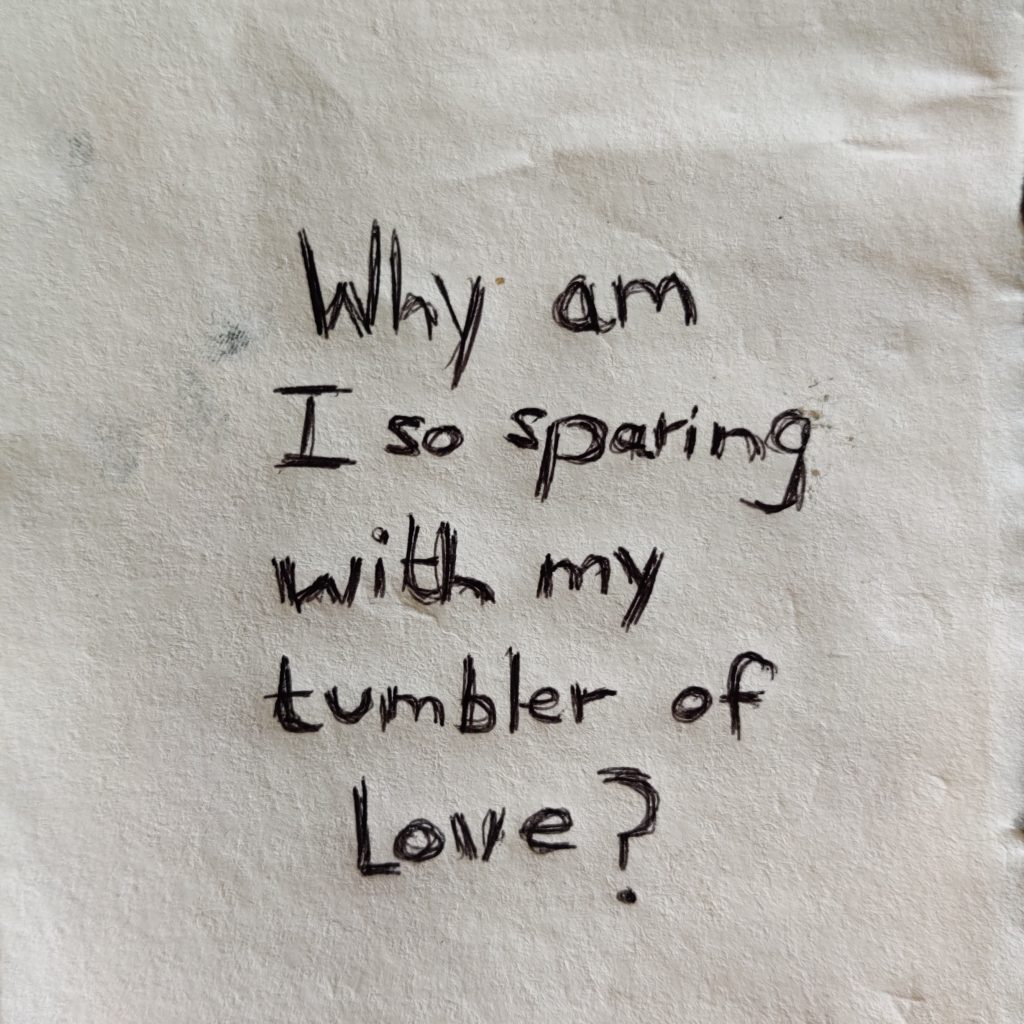 Why am
I so sparing
with my
tumbler of
Love?